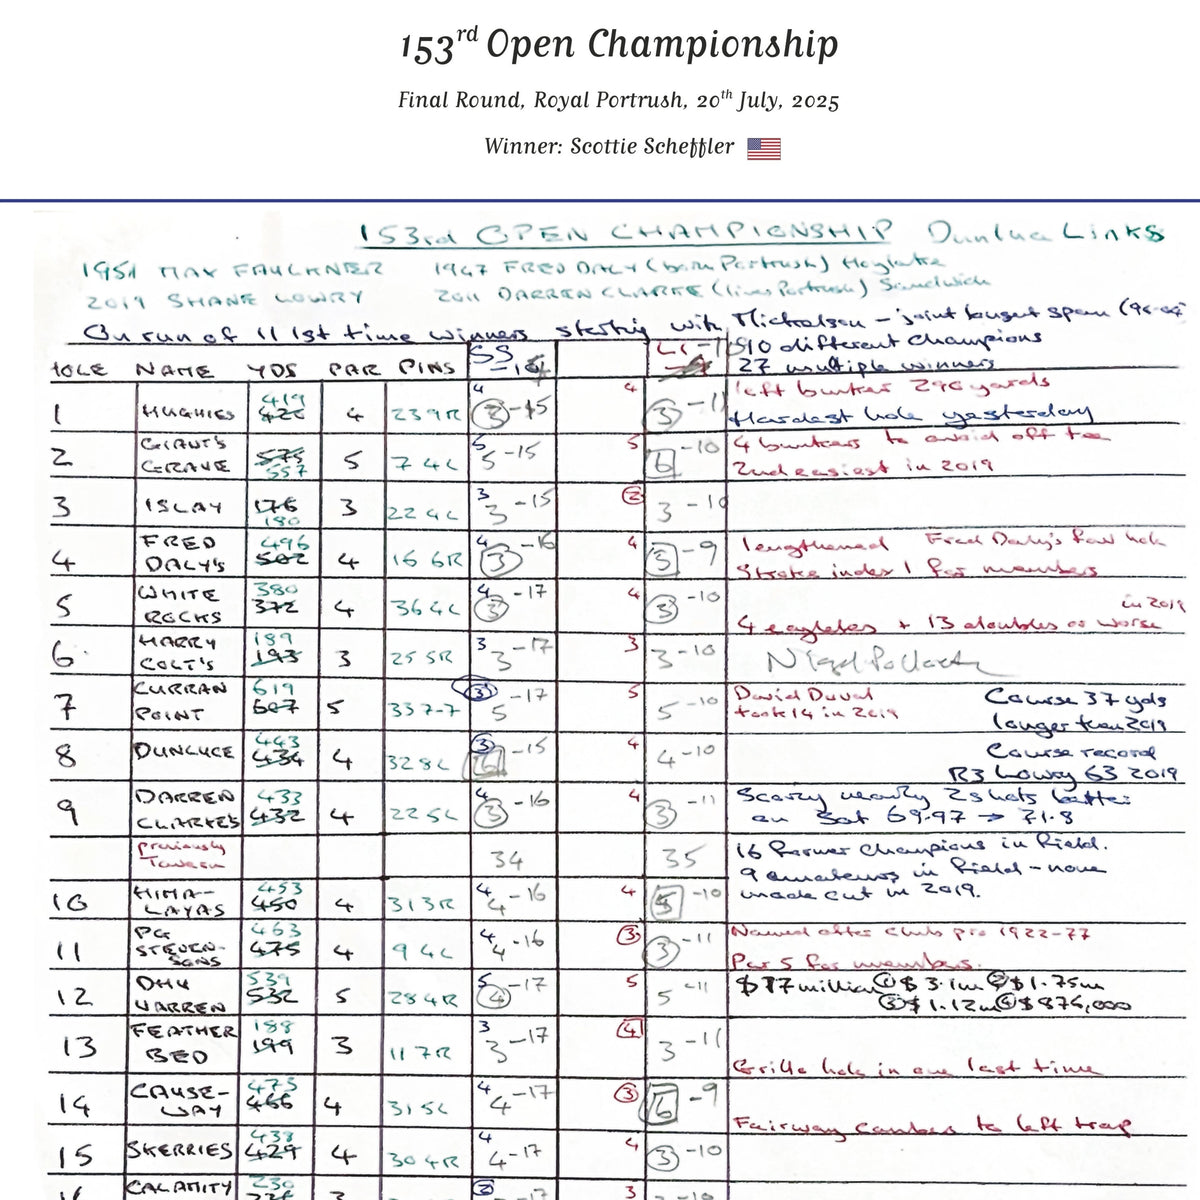 153rd Open Championship
Final Round, Royal Portrush, 20th July, 2025
Winner: Scottie Scheffler
153rd OPEN CHAMPIONSHIP Dunluce LINKS
1951 MAX FAULKNER 1947 FRED DALY (born Portrush) Hoylake
2019 SHANE LOWRY 2011 DARREN CLARKE (lives Portrush) Sandwich
On run of 11 1st time winners starting with Mickelson – joint longest span (94-04
SS 10 different champions
HOLE NAME YDS PAR PINS 27 multiple winners
left bunker 296 yards
1 HUGHIES 419 426 4 23 9R 4 3 -15 4 3 -11 Hardest hole yesterday
2 GIANT'S GRAVE 575 557 5 7 4L 5 5 -15 5 6 -10 4 bunkers to avoid off tee
2nd easiest in 2019
3 ISLAY 176 180 3 22 4L 3 3 -15 2 3 -10
4 FRED DALY'S 496 502 4 16 6R 4 3 -16 4 5 -9 lengthened Fred Daly's fav hole
Stroke index 1 for members
5 WHITE ROCKS 380 372 4 36 4L 4 3 -17 4 3 -10 in 2019
4 eagles + 13 doubles or worse
6 HARRY COLT'S 189 193 3 25 5R 3 3 -17 3 3 -10 Nigel Pollock
7 CURRAN POINT 619 607 5 33 7-7 3 5 -17 5 5 -10 David Duval Course 37 yds
took 14 in 2019 longer than 2019
8 DUNLUCE 443 434 4 32 8L 3 6 -15 4 4 -10 Course record
R3 Lowry 63 2019
9 DARREN CLARKE'S 433 432 4 22 5L 4 3 -16 4 3 -11 Scoring nearly 2 shots better
on Sat 69.97 → 71.8
previously Tavern 34 35 16 former champions in field.
9 amateurs in field – none
10 HIMA-LAYAS 453 450 4 31 3R 4 4 -16 4 5 -10 made cut in 2019.
11 PG STEVEN-SONS 463 475 4 9 4L 4 4 -16 3 3 -11 Named after club pro 1922-77
Par 5 for members.
12 DHU VARREN 539 532 5 28 4R 5 4 -17 5 5 -11 $17 million ① $3.1m ② $1.75m
③ $1.12m ④ $876,000
13 FEATHER BED 188 199 3 11 7R 3 3 -17 4 3 -11
Grillo hole in one last time
14 CAUSE-WAY 473 466 4 31 5L 4 4 -17 3 6 -9
Fairway cambers to left trap
15 SKERRIES 433 429 4 30 4R 4 4 -17 4 3 -10
CALAMITY 230 3 2 -17 3 -10